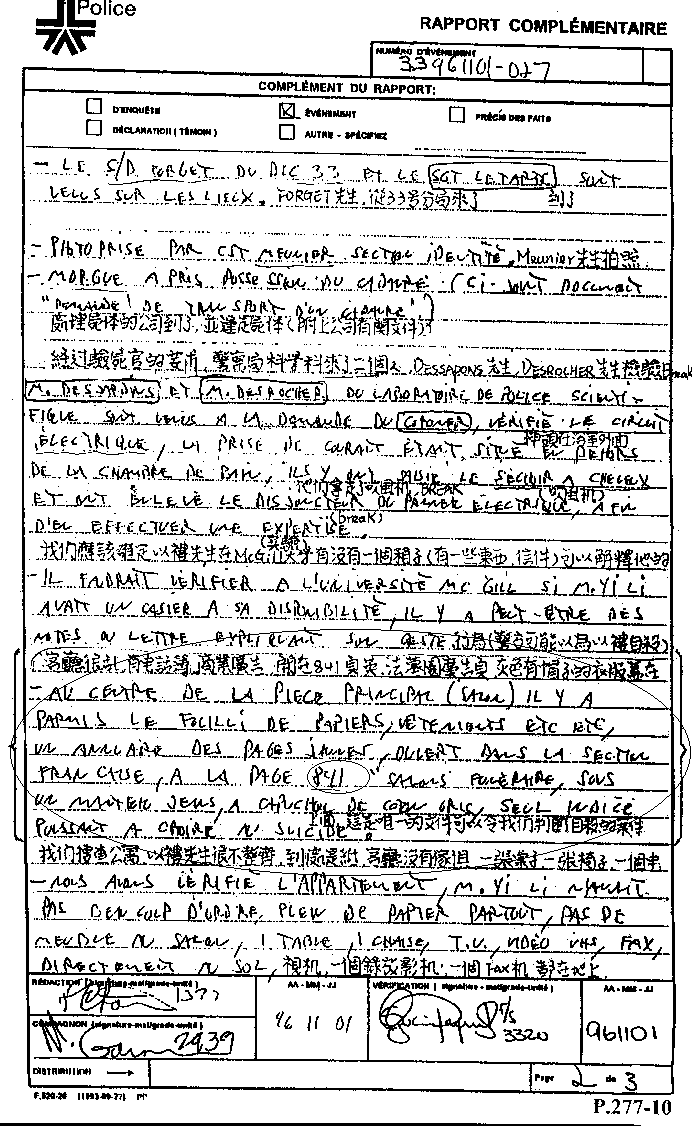 Police
RAPPORT COMPLÉMENTAIRE
NUMÉRO D'ÉVÉNEMENT
33961101-027
COMPLÉMENT DU RAPPORT:
D'ENQUÊTE
ÉVÉNEMENT
PRÉCIS DES FAITS
DÉCLARATION (TÉMOIN)
AUTRE - SPÉCIFIEZ
- LE S/D FORGET DU DIC 33 ET LE SGT LETARTE SONT
VENUS SUR LES LIEUX. FORGET先生,從33号分局來了 到了
- PHOTO PRISE PAR CST MEUNIER SECTION IDENTITÉ. Meunier先生拍照
- MORGUE A PRIS POSSESSION DU CADAVRE (CI-JOINT DOCUMENT
"DEMANDE DE TRANSPORT D'UN CADAVRE")
處理屍体的公司到了,並運走屍体(附上公司有關文件)
經过驗屍官的要求,警察局科學科來了二個人 DESSAPONS先生, DESROCHER先生 break
M. DESSAPONS ET M. DESROCHER DU LABORATOIRE DE POLICE SCIENTI-
FIQUE SONT VENUS A LA DEMANDE DU CORONER, VÉRIFIÉ LE CIRCUIT
ÉLECTRIQUE, LA PRISE DE COURANT ÉTAIT SITUÉ EN DEHORS
插頭在浴室外面
DE LA CHAMBRE DE BAIN, ILS Y ONT SAISIE LE SÉCHOIR A CHEVEUX
他们拿走了吹風机 BREAK (吹風机)
ET ONT ENLEVÉ LE DISJONCTEUR DU PANNEAU ÉLECTRIQUE, AFIN
(break)
D'EN EFFECTUER UNE EXPERTISE.
我們應該確定以禮先生在McGill大學有沒有一個箱子(有一些東西,信件)可以解釋他的
- IL FAUDRAIT VÉRIFIER A L'UNIVERSITÉ MC GILL SI M. YI LI
AVAIT UN CASIER A SA DISPONIBILITÉ, IL Y A PEUT-ETRE DES
NOTES OU LETTRE EXPLIQUANT SON GESTE. 行為(警察可能以為以禮自殺)
客廳很乱,有電話薄,商業廣告,開在841頁頁,法蘭 灰色有帽子的衣服蓋在
- AU CENTRE DE LA PIECE PRINCIPAL (SALON) IL Y A
PARMIS LE FOUILLI DE PAPIERS, VETEMENTS ETC ETC,
UN ANNUAIRE DES PAGES JAUNES, OUVERT DANS LA SECTION
FRANCAISE, A LA PAGE 841 "SALONS FUNÉRAIRE, SOUS
UN MANTEAU JEUNS, A CAPUCHON DE COTON GRIS, SEUL INDICE
POUSSANT A CROIRE AU SUICIDE. 上面 這是唯一的文件可以令我們判斷自殺的案件
我們搜查公寓,以禮先生很不整齊,到處是紙,客廳沒有傢俱,一張桌子,一張椅子,一個电
- NOUS AVONS VÉRIFIÉ L'APPARTEMENT, M. YI LI N'AVAIT
PAS BEAUCOUP D'ORDRE, PLEIN DE PAPIER PARTOUT, PAS DE
MEUBLE AU SALON, 1 TABLE, 1 CHAISE, T.V., VIDÉO VHS, FAX,
DIRECTEMENT AU SOL, 視机,一個錄放影机,一個FAX机 都在地上.
RÉDACTION (signature-matricule-unité)
AA - MM - JJ
VÉRIFICATION (signature - matricule - unité)
AA - MM - JJ
96 11 01
3320
961101
COMPAGNON (signature-matricule-unité)
2439
DISTRIBUTION
Page 2 de 3
F.520-26 (1993-09-27)
P.277-10